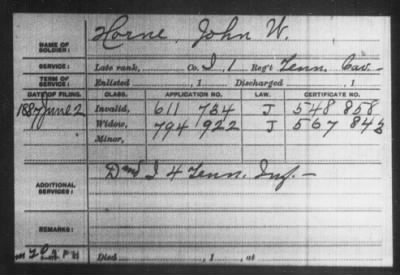 NAME OF SOLDIER: Horne, John W.
SERVICE: Late rank, Co. I, 1 Reg't Tenn. Cav.
TERM OF SERVICE: Enlisted , 1 Discharged , 1
DATE OF FILING. CLASS. APPLICATION NO. LAW. CERTIFICATE NO.
1887 June 2 Invalid, 611 734 J 548 858
Widow, 794 922 J 567 843
Minor,
ADDITIONAL SERVICES: D and I 4 Tenn. Inf.
REMARKS:
Died , 1 , at